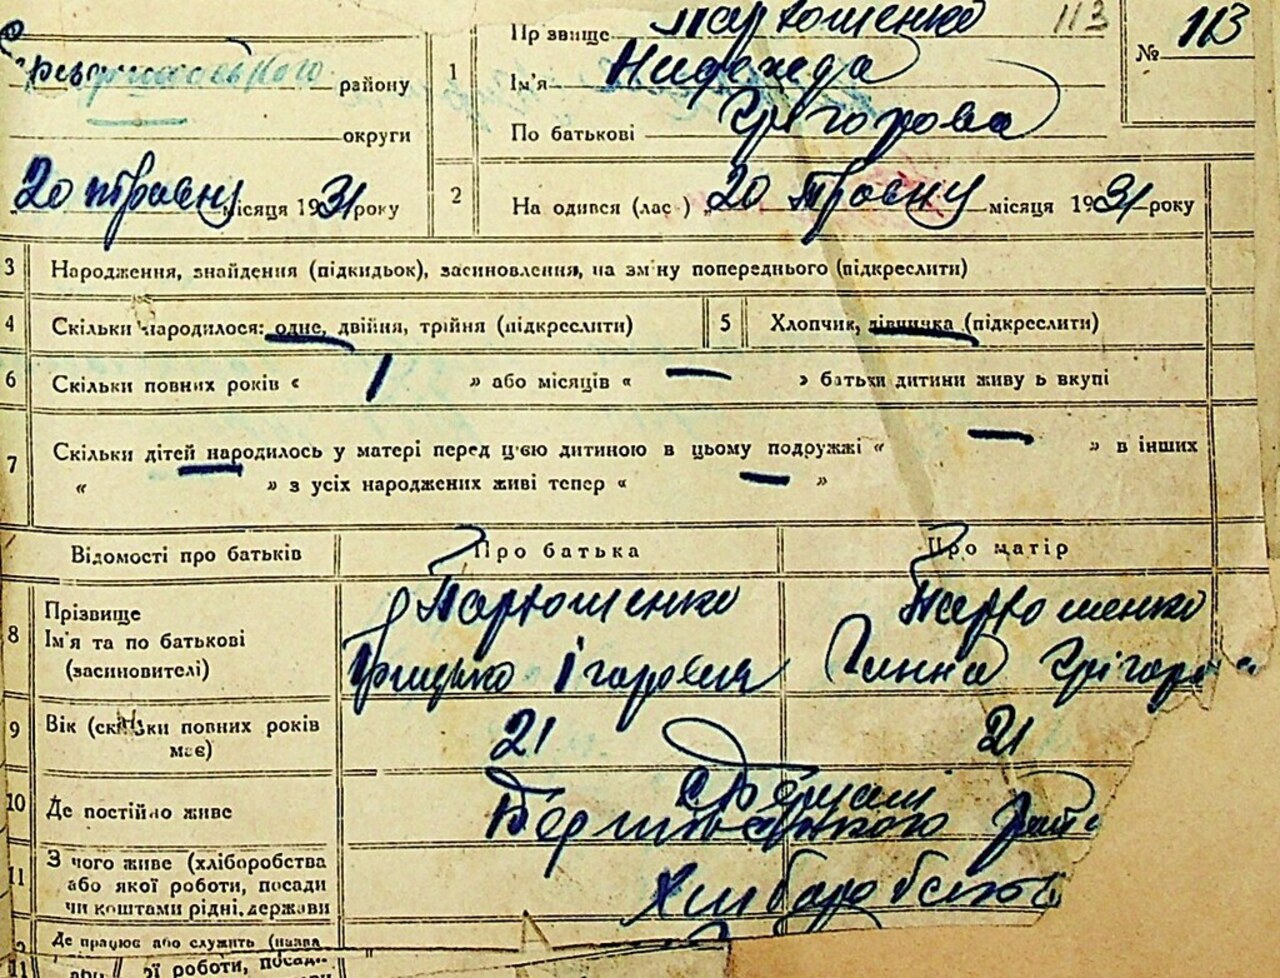 району
округи
20 травня місяця 1931 року
1
Прізвище Партошенко 113
Ім'я Надежда
По батькові Грігорова
№ 113
2
На одився (лас ) „ 20 травня місяця 1931 року
3 Народження, знайдення (підкидьок), засиновлення, на зм ну попереднього (підкреслити)
4 Скільки народилося: одне, двійня, трійня (підкреслити) 5 Хлопчик, дівчинка (підкреслити)
6 Скільки повних років « 1 » або місяців « — » батьки дитини живу ь вкупі
7 Скільки дітей народилось у матері перед цією дитиною в цьому подружжі « — » в інших
« » з усіх народжених живі тепер « — »
Відомості про батьків Про батька Про матір
8 Прізвище Партошенко Партошенко
Ім'я та по батькові Грицько Ігорович Ганна Грігор
(засиновителі)
9 Вік (скільки повних років 21 21
має)
10 Де постійно живе
11 З чого живе (хліборобства
або якої роботи, посади
чи коштами рідні, держави
Де працює або служить (назва
11 ої роботи, посади